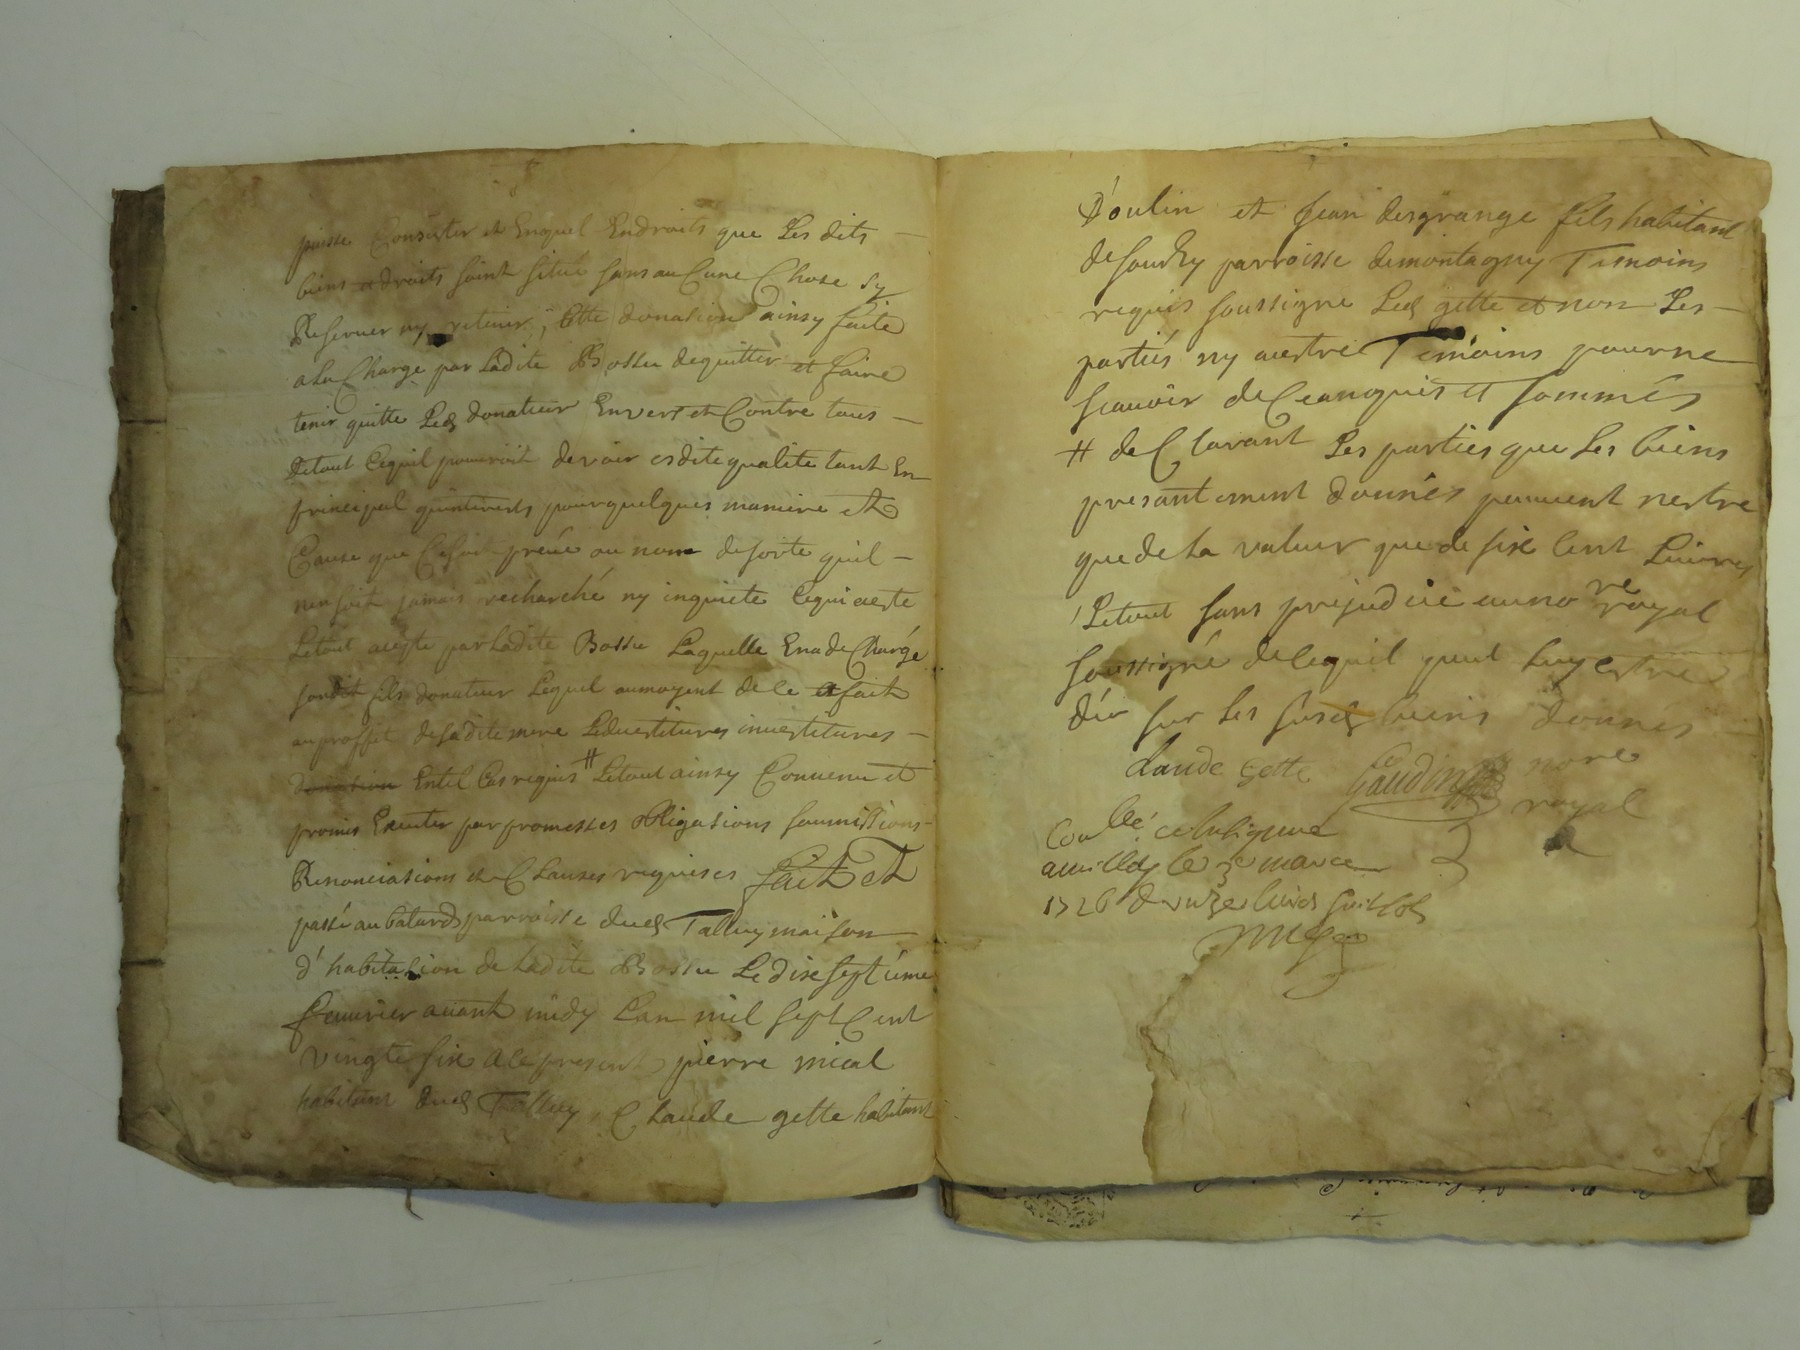 puisse Consister et Enquel Endroits que Les dits
biens et droits soint situé sans aucune Chose sy
Reseruer ny retenir, Cette donation ainsy faite
a La Charge par Ladite Bossu dequitter et faire
tenir quitte Led donateur Envers et Contre tous
detout Cequil pouuroit devoir esdite qualité tant En
principal quinterests pour quelques maniere et
Cause que Cesoit preué ou non desorte quil
nen soit jamais recharché ny inquiete Cequi aeste
Letout acepte par Ladite Bossu Laquelle Ena de Chargé
sondit fils donateur Lequel aumoyent dece a fait
au proffit desadite mere Lesdeuestitures inuestitures
Entel Cas requis # Letout ainsy Conuenu et
promis Executer par promesses obligations soumissions
Renonciations et Clauses requises fait et
passé au batard parroisse dud Talluy maison
d'habitation de Ladite Bossu Le dix septieme
feurier auant midy Lan mil sept Cent
vingte six A ce present pierre mical
habitant dud Talluy, Claude gette habitant
D'oulin et Jean desgrange fils habitant
de sourzy parroisse demontagny Temoins
requis soussigne Led gette et non Les
parties ny autre Temoins pour ne
scauoir de Ce enquis et sommés
# de Clarant Les parties que Les biens
presantement donnés peuuent nestre
que de La valeur que de six Cent Liures
Letout sans prejudice au no re royal
soussigné de Cequil peut Luy estre
deu sur Les susd biens donnés
Claude gette Gaudin nore
royal
Conllé
amilley le 3e mars
1726 douze liures huit sols